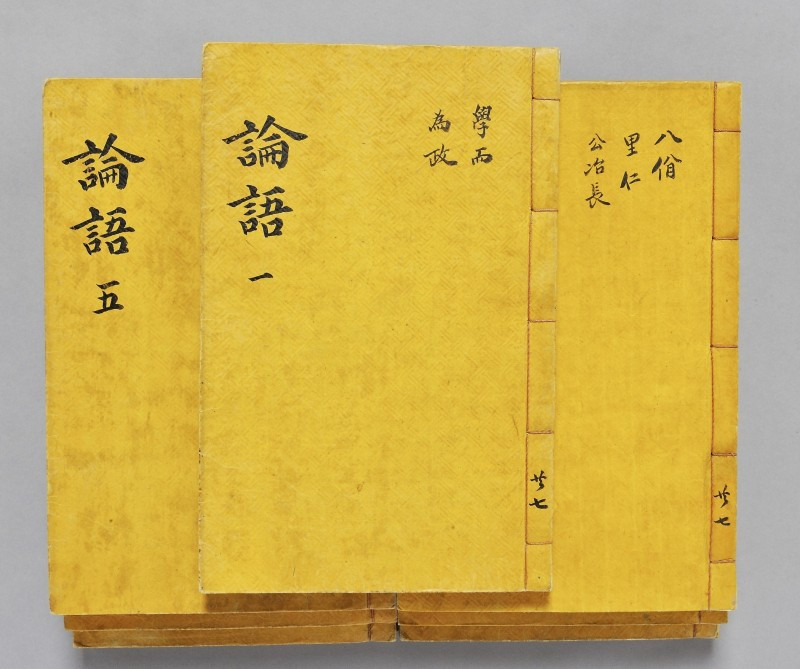 論語 五
學而
為政
論語 一
共七
八佾
里仁
公冶長
共七